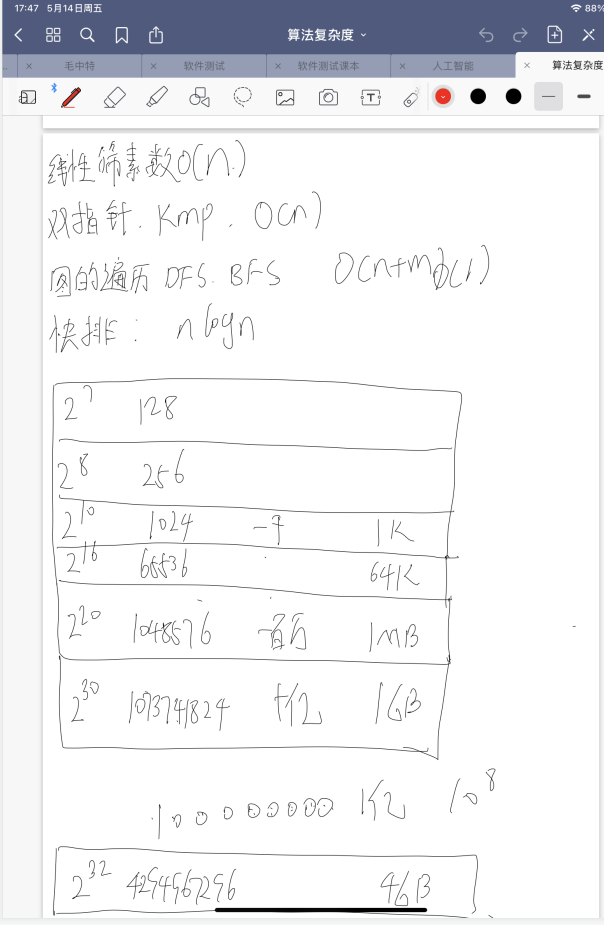 17:47 5月14日周五 88%
算法复杂度
毛中特 软件测试 软件测试课本 人工智能 算法复杂度
线性筛素数O(n)
双指针. Kmp. O(n)
图的遍历 DFS. BFS O(n+m)
快排: nlogn
2^7 128
2^8 256
2^10 1024 一千 1K
2^16 65536 64K
2^20 1048576 一百万 1MB
2^30 1073741824 十亿 1GB
100000000 1亿 10^8
2^32 4294967296 4GB